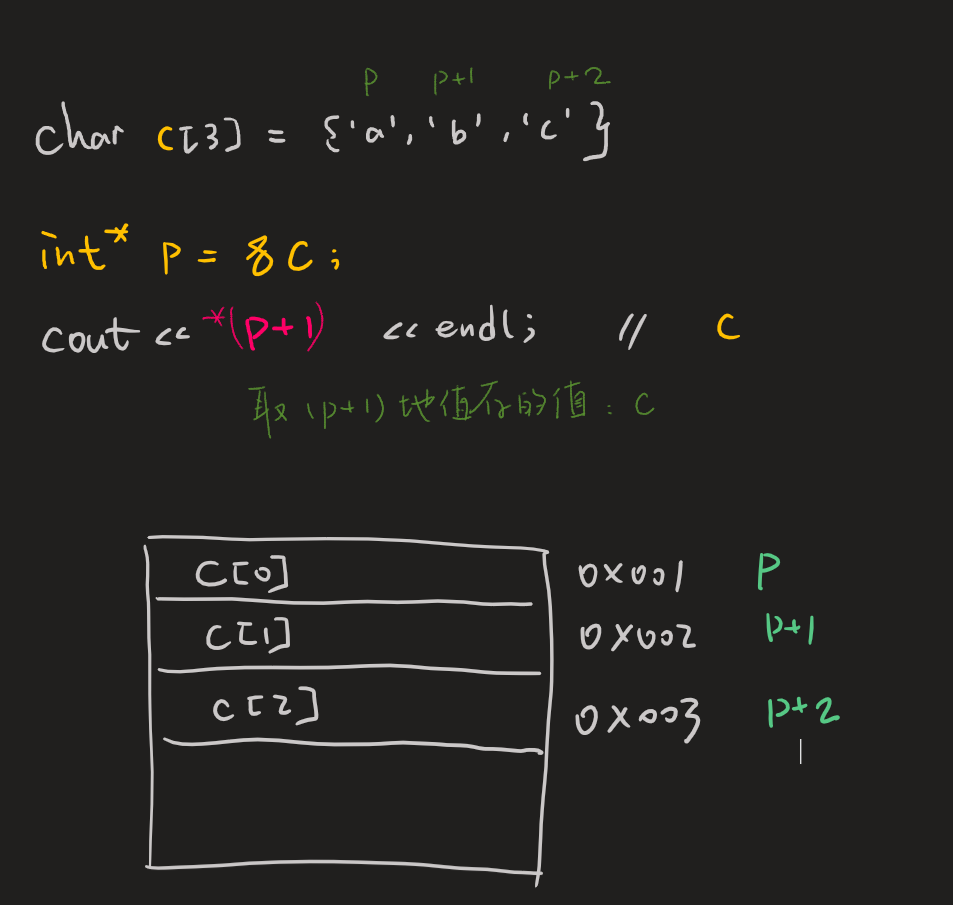 p p+1 p+2
char c[3] = {'a','b','c'}
int* p = &c;
cout << *(p+1) << endl; // c
取(p+1)地值存的值：c
C[0] 0x001 P
C[1] 0x002 p+1
C[2] 0x003 p+2